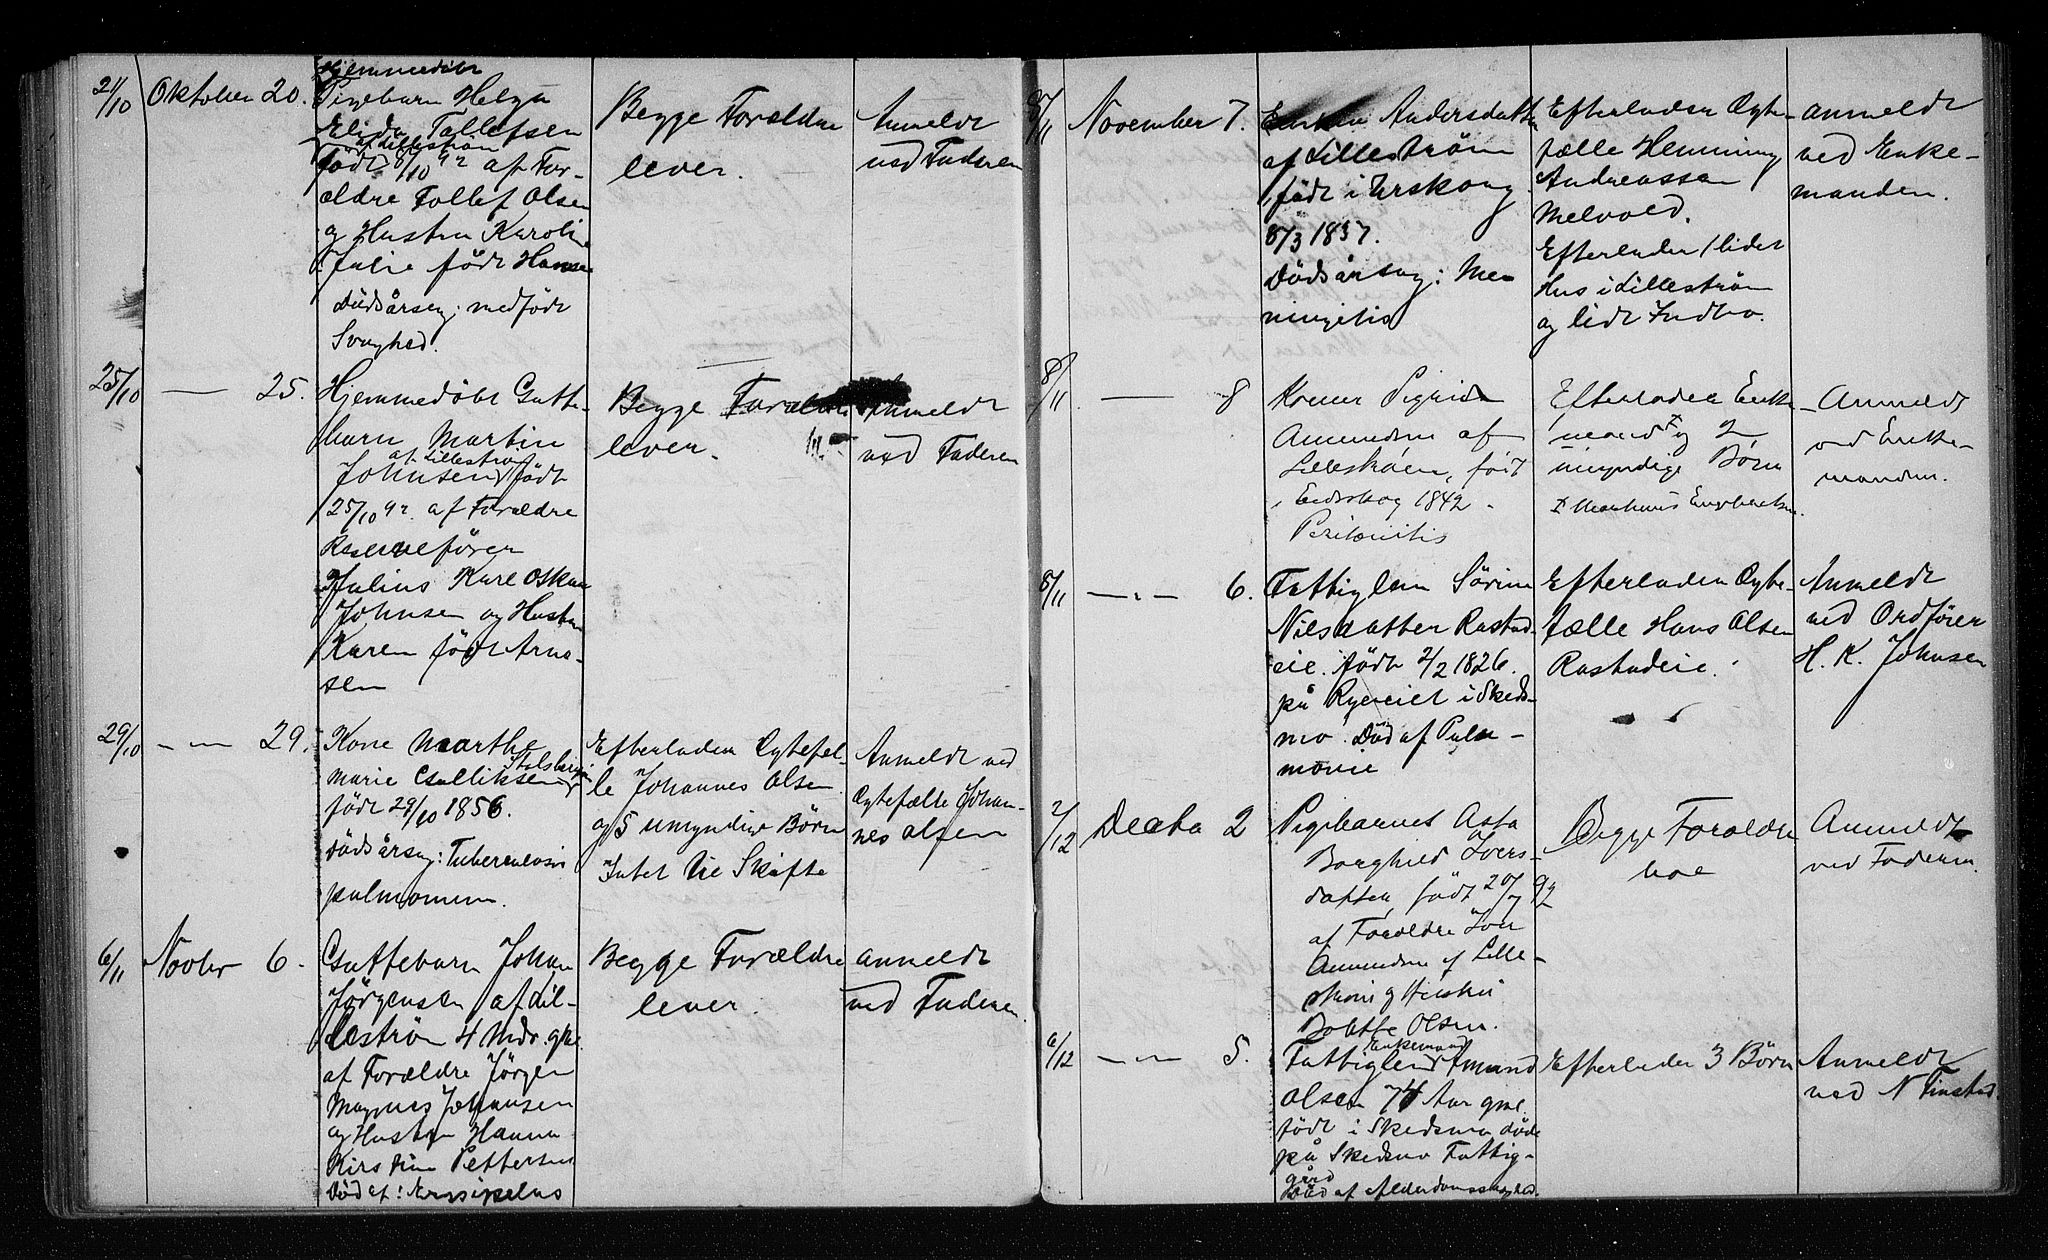 21/10
Oktober 20.
Hjemmedøbt
Pigebarn Helga
Elida Tollefsen
af Lillestrøm
født 8/10 92 af For-
ældre Tollef Olsen
og Hustru Karoline
Julie født Hansen
Dødsårsag: medfødt
Svaghed.
Begge Forældre
lever.
Anmeldt
ved Faderen
25/10
— 25.
Hjemmedøbt Gutte-
barn Martin
af Lillestrøm
Johnsen født
25/10 92. af Forældre
Reservefører
Julius Karl Oskar
Johnsen og Hustru
Karen født Arne-
sen
Begge Forældre
lever.
Anmeldt
ved Faderen
29/10
— „ — 29.
Kone Marthe
Stalsbergeie
Marie Gulliksen
født 29/10 1856.
Dødsårsag: Tuberculosis
pulmonum.
Efterlader Ægtefæl-
le Johannes Olsen
og 5 umyndige Børn
Intet til Skifte
Anmeldt ved
Ægtefælle Johan-
nes Olsen
6/11
Novbr 6.
Guttebarn Johan
Jørgensen af Lil-
lestrøm 4 Mdr. gml.
af Forældre Jørgen
Magnus Johansen
og Hustru Hanna
Kirstine Pettersen
Død af: Erysipelas
Begge Forældre
lever.
Anmeldt
ved Faderen.
8/11
November 7.
Andersdatter
af Lillestrøm
født i Urskoug
8/3 1837.
Dødsårsag: Me-
ningitis
Efterlader Ægte-
fælle Henning
Andreassen
Melvold.
Efterlader 1 lidet
Hus i Lillestrøm
og lidt Indbo.
Anmeldt
ved Enke-
manden.
8/11
— 8
Konen Sigrid
Amundsen af
Lillestrøm, født
i Eidskog 1842.
Peritonitis
Efterlader Enke-
mand x og 2
umyndige Børn
x Marthinus Engebretsen.
Anmeldt
ved Enke-
manden.
8/11
— „ — 6.
Fattiglem Sørine
Nilsdatter Rastad-
eie. født 2/2 1826.
på Ryeneiet i Skeds-
mo. Død af Pulu-
monie
Efterlader Ægte-
fælle Hans Olsen
Rastadeie.
Anmeldt
ved Ordfører
H. K. Johnsen
2/12
Decbr 2
Pigebarnet Asta
Borghild Ivers-
datter, født 20/7 92
af Forældre Iver
Amundsen af Lille-
strøm og Hustru
Bolette Olsen.
Begge Forældre
leve
Anmeldt
ved Faderen.
6/12
— „ — 5.
Enkemand
Fattiglem Amund
Olsen 74 Aar gml.
født i Skedsmo døde
på Skedsmo Fattig-
gård
Død af Alderdomssvaghed.
Efterlader 3 Børn
Anmeldt
ved N. Finstad